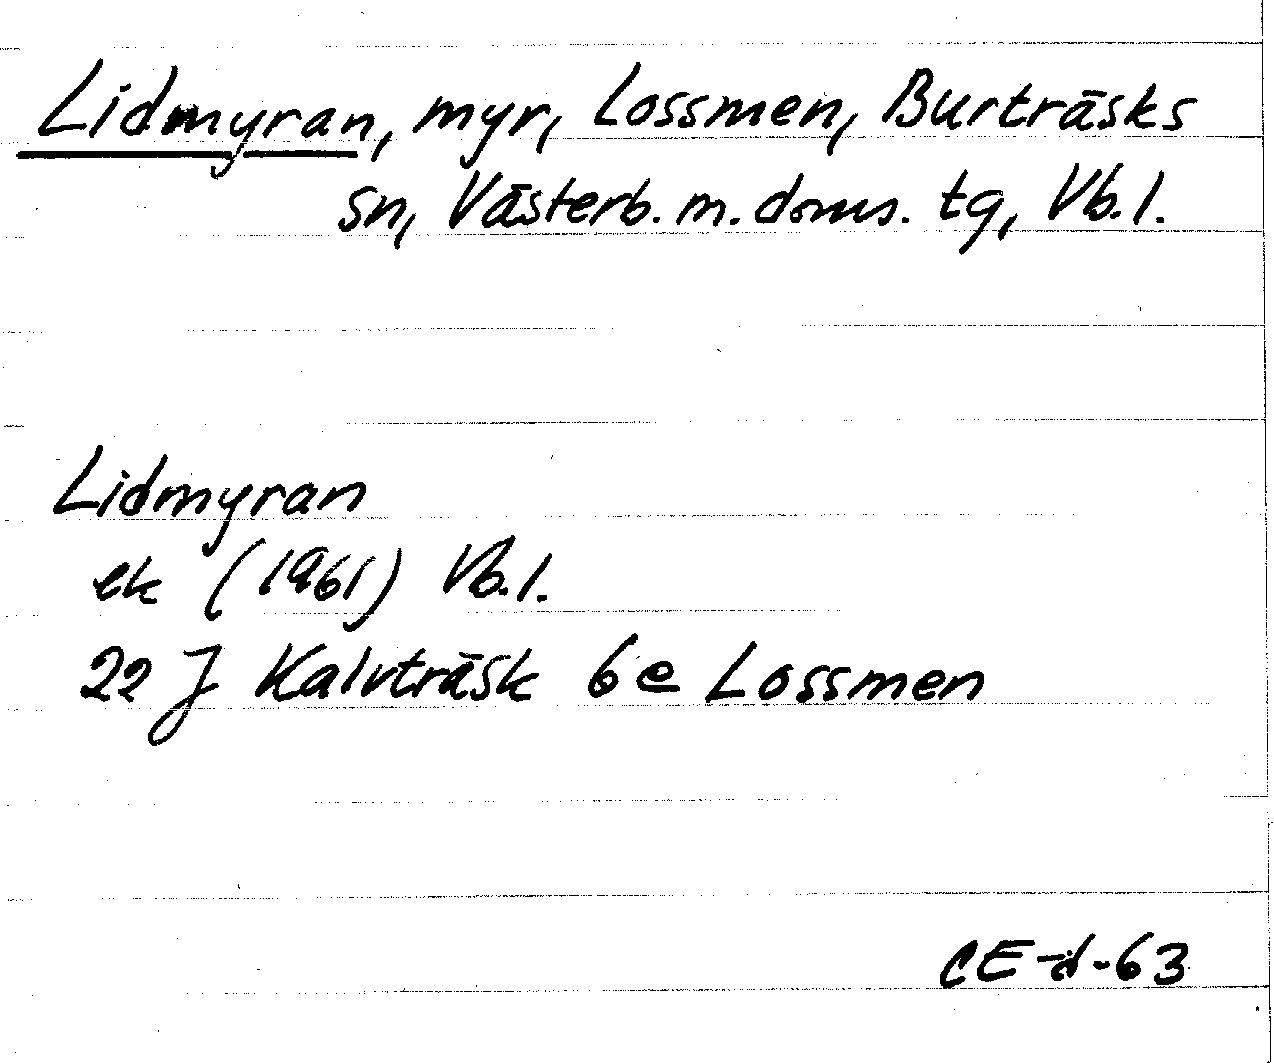 Lidmyran, myr, Lossmen, Burträsks
sn, Västerb. m. doms. tg, Vb. l.
Lidmyran
ek (1961) Vb. l.
22 J Kalvträsk 6e Lossmen
CE-d-63